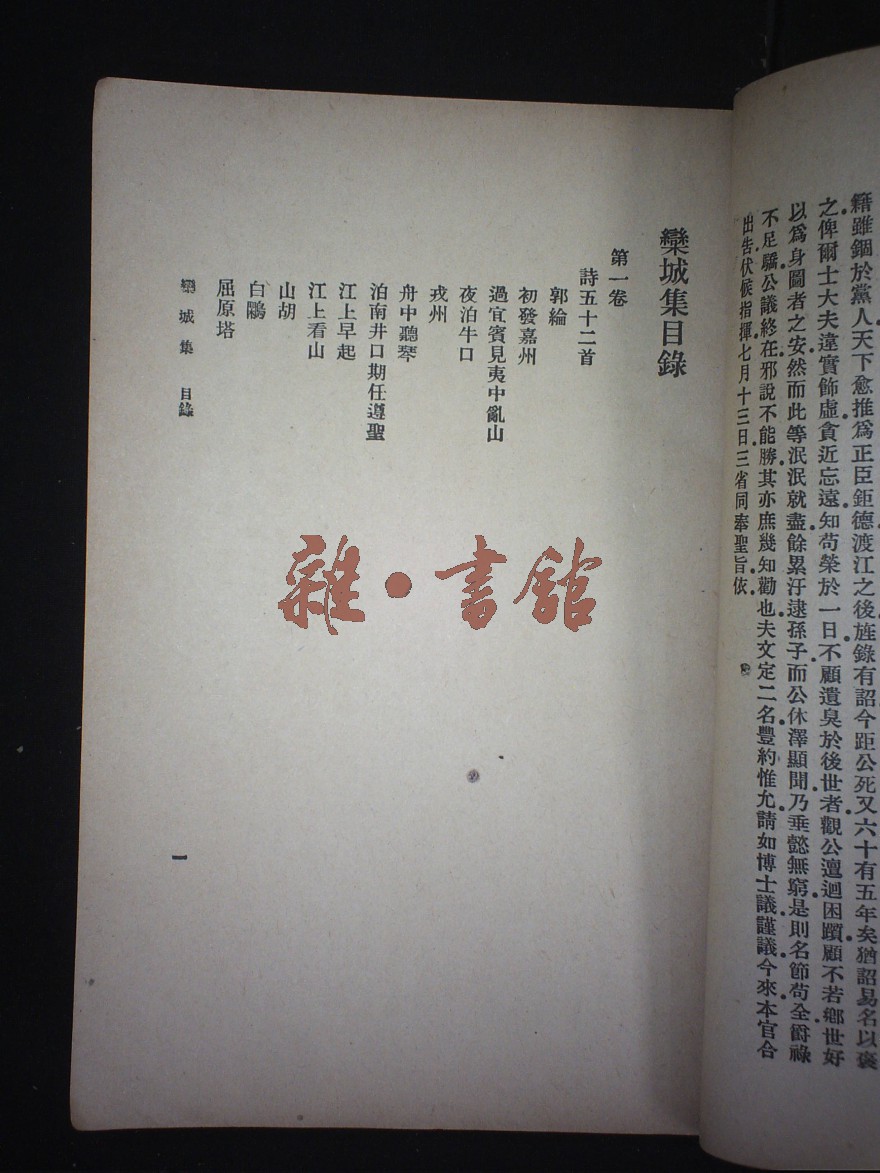 籍雖錮於黨人天下愈推爲正臣鉅德渡江之後旌錄有詔今距公死又六十有五年矣猶詔易名以褒
之俾爾士大夫違實飾虛貪近忘遠知苟榮於一日不顧遺臭於後世者觀公邅迴困躓顧不若鄉世好
以爲身圖者之安然而此等泯泯就盡餘累汙逮孫子而公休澤顯聞乃垂懿無窮是則名節苟全爵祿
不足驕公議終在邪說不能勝其亦庶幾知勸也夫文定二名豐約惟允請如博士議謹議今來本官合
出告伏候指揮七月十三日三省同奉聖旨依
欒城集目錄
第一卷
詩五十二首
郭綸
初發嘉州
過宜賓見夷中亂山
夜泊牛口
戎州
舟中聽琴
泊南井口期任遵聖
江上早起
江上看山
山胡
白鷴
屈原塔
欒城集 目錄
一
雜·書館